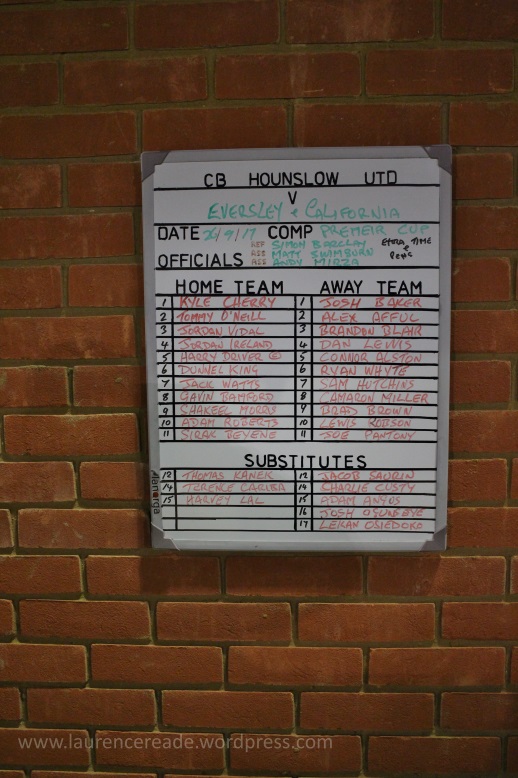 CB HOUNSLOW UTD
V
EVERSLEY & CALIFORNIA
DATE 26/9/17 COMP PREMEIR CUP
REF SIMON BARCLAY EXTRA TIME
OFFICIALS ASS MATT SWIMBURN & PENS
ASS ANDY MIRZA
HOME TEAM AWAY TEAM
1 KYLE CHERRY 1 JOSH BAKER
2 TOMMY O'NEILL 2 ALEX AFFUL
3 JORDAN VIDAL 3 BRANDON BLAIR
4 JORDAN IRELAND 4 DAN LEWIS
5 HARRY DRIVER © 5 CONNOR ALSTON
6 DUNNEL KING 6 RYAN WHYTE
7 JACK WATTS 7 SAM HUTCHINS
8 GAVIN BAMFORD 8 CAMARON MILLER
9 SHAKEEL MORRIS 9 BRAD BROWN
10 ADAM ROBERTS 10 LEWIS ROBSON
11 SIRAK BEYENE 11 JOE PANTONY
SUBSTITUTES
12 THOMAS KANEK 12 JACOB SAURIN
14 TERENCE CARIBA 14 CHARLIE CUSTY
15 HARVEY LAL 15 ADAM
16 JOSH OGUNSEYE
17 LEKAN OSIEDOKO
Nanonga
www.laurencereade.wordpress.com